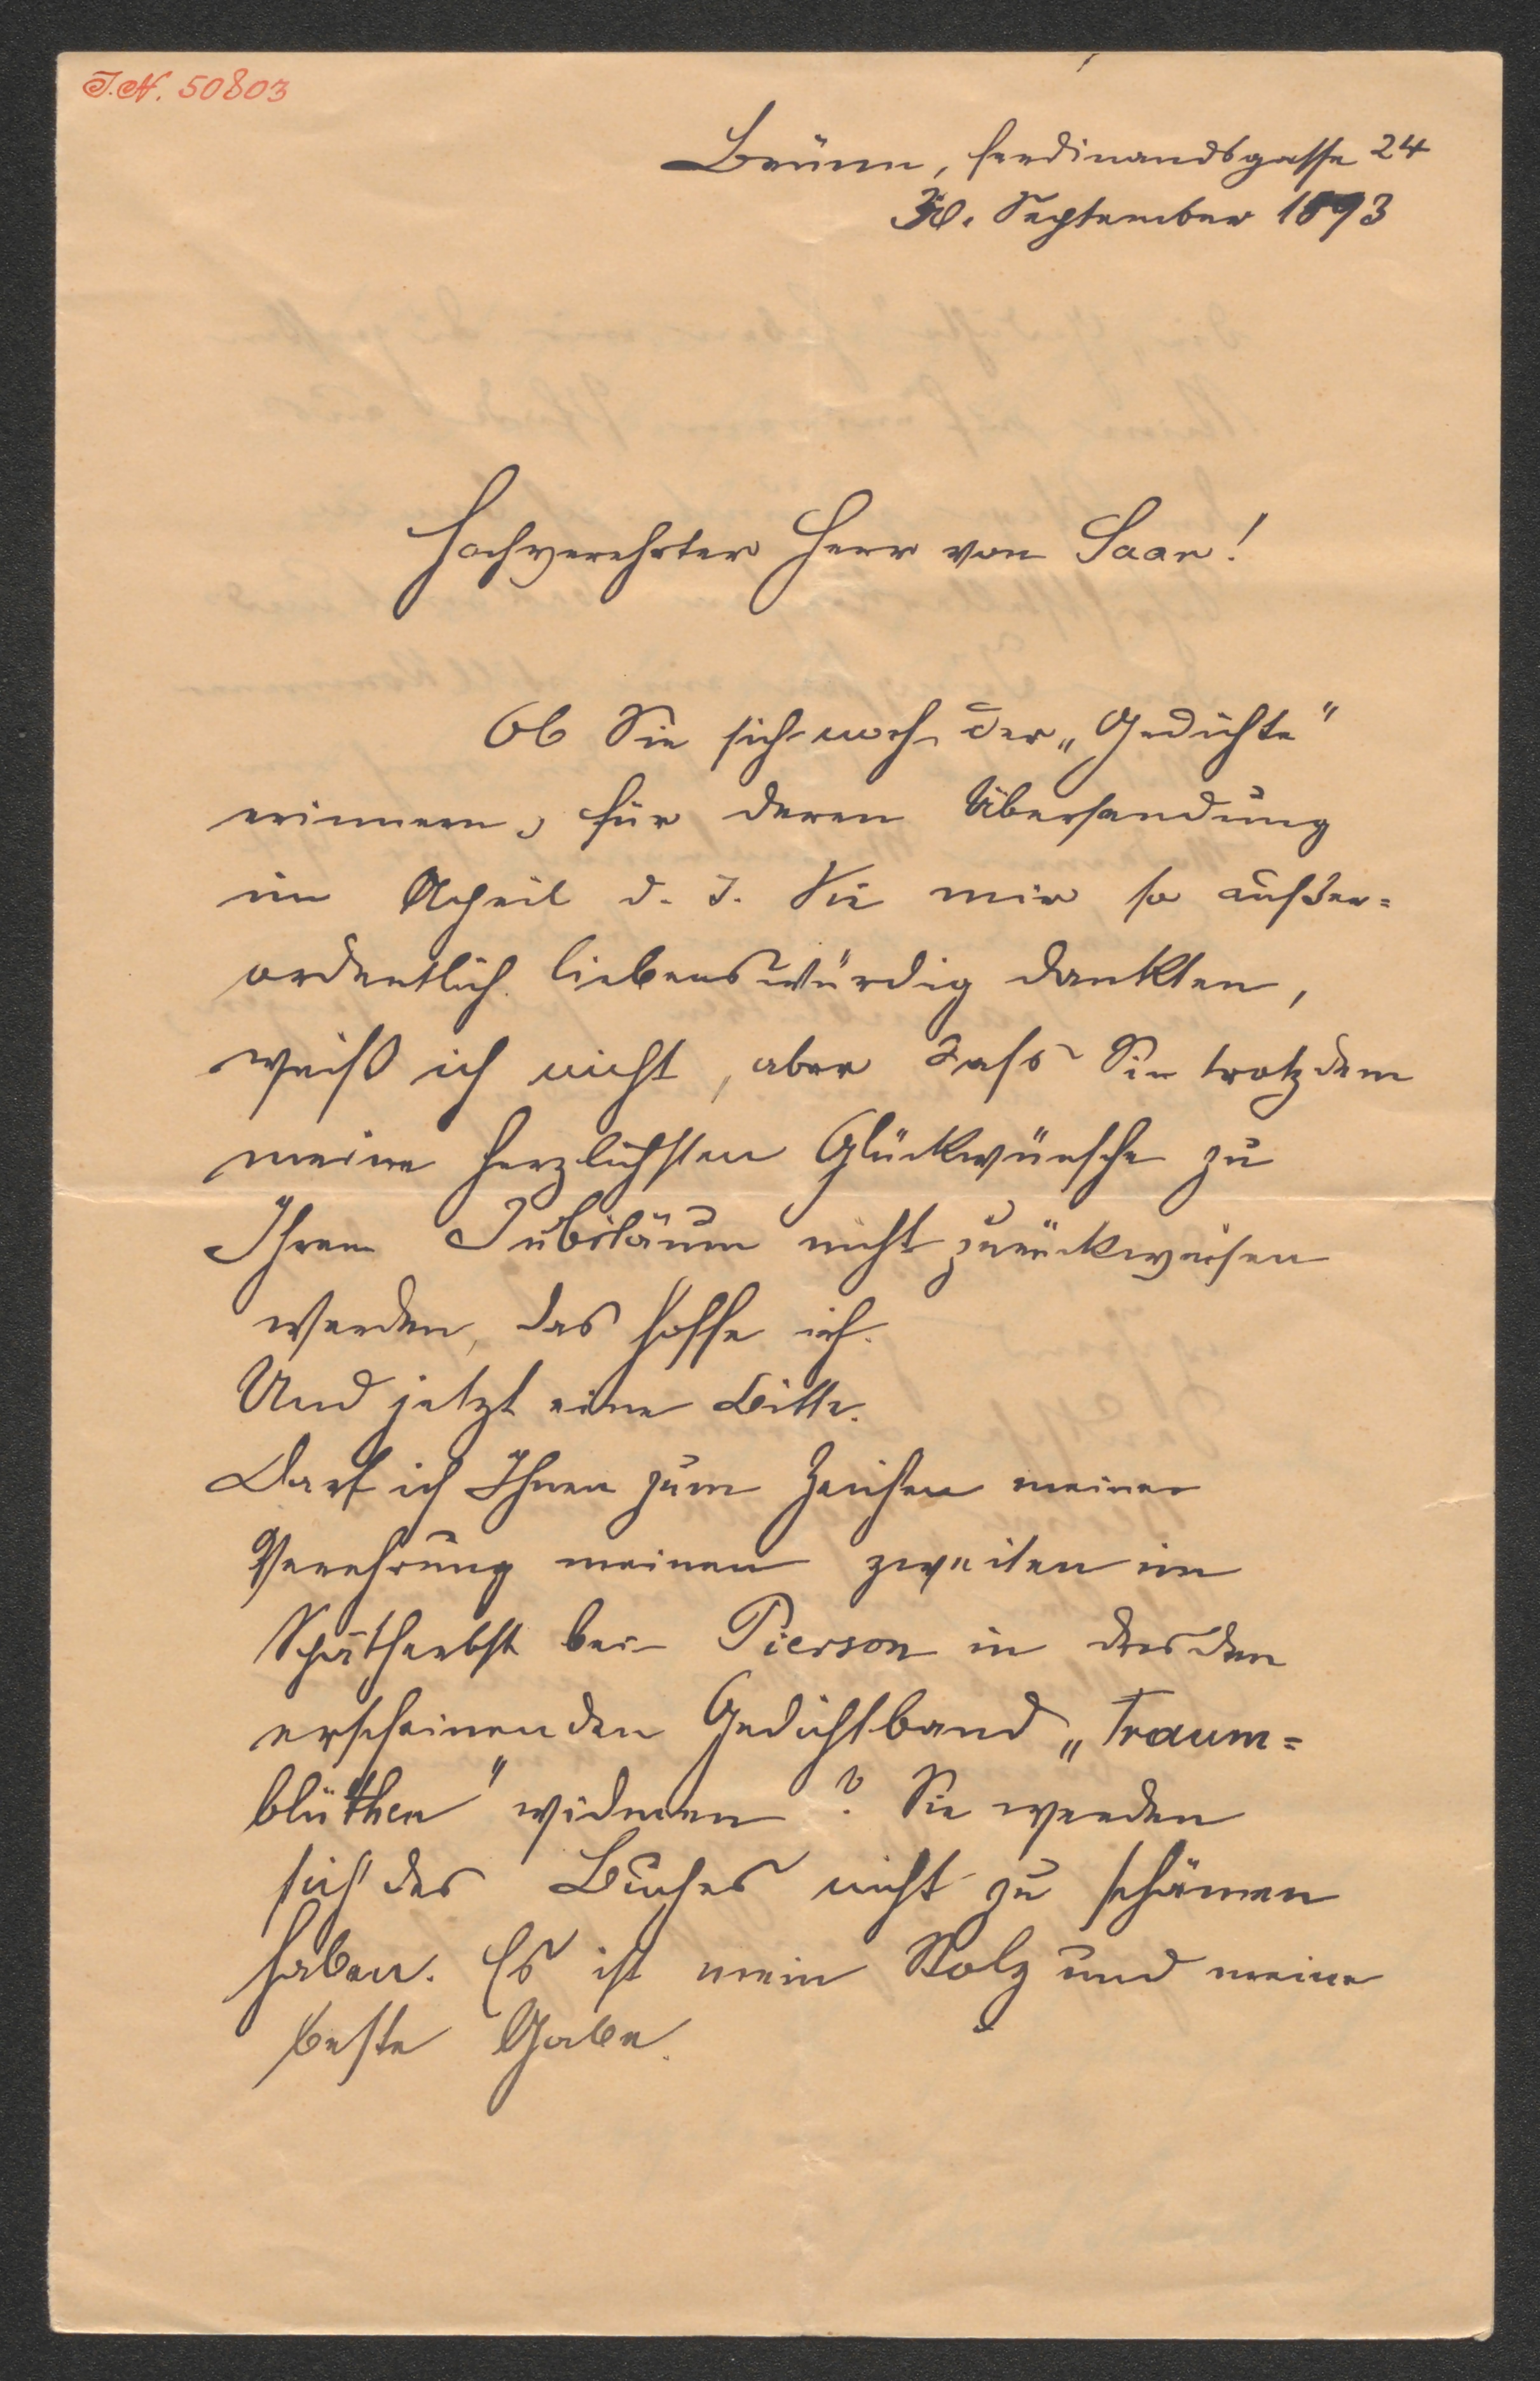 I.N. 50803
Brünn, Ferdinandsgasse 24
30. September 1893
Hochverehrter Herr von Saar!
Ob Sie sich noch der „Gedichte"
erinnern, für deren Übersendung
im April d. J. Sie mir so außer=
ordentlich liebenswürdig dankten,
weiß ich nicht, aber dass Sie trotzdem
meine herzlichsten Glückwünsche zu
Ihrem Jubiläum nicht zurückweisen
werden, das hoffe ich.
Und jetzt eine Bitte.
Darf ich Ihnen zum Zeichen meiner
Verehrung meinen zweiten im
Spätherbst bei Pierson in Dresden
erscheinenden Gedichtband „Traum=
blüthen" widmen? Sie werden
sich des Buches nicht zu schämen
haben. Es ist mein Stolz und meine
beste Gabe.